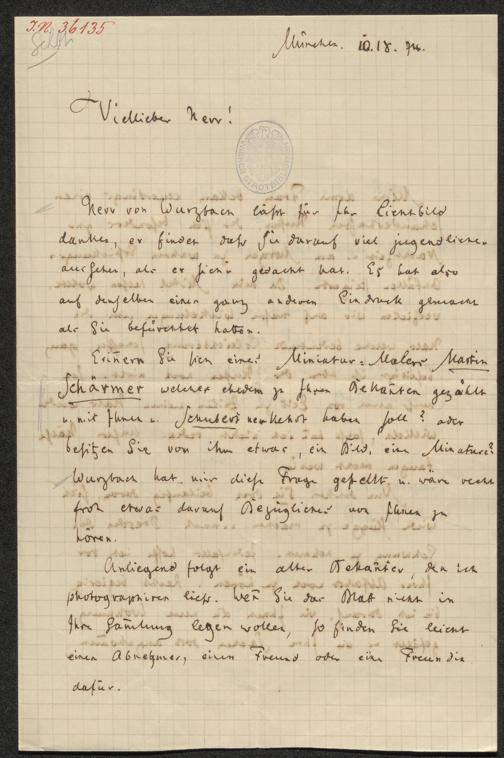 I.N. 36135
München. 10.IX.94.
Viellieber Herr!
Herr von Wurzbach läßt für Ihr Lichtbild
danken, er findet daß Sie darauf viel jugendlicher
aussehen, als er sich's gedacht hat. Es hat also
auf denselben einen ganz anderen Eindruck gemacht
als Sie befürchtet hatten.
Erin̄ern Sie sich eines Miniatur-Malers Martin
Schärmer welcher ehedem zu Ihren Bekan̄ten gezählt
u. mit Ihnen u. Schubert verkehrt haben soll? oder
besitzen Sie von ihm etwas, ein Bild, eine Miniature?
Wurzbach hat mir diese Frage gestellt u. wäre recht
froh etwas darauf Bezügliches von Ihnen zu
hören.
Anliegend folgt ein alter Bekan̄ter, den ich
photographiren ließ. Wen̄ Sie das Blatt nicht in
Ihre Sam̄lung legen wollen, so finden Sie leicht
einen Abnehmer, einen Freund oder eine Freundin
dafür.